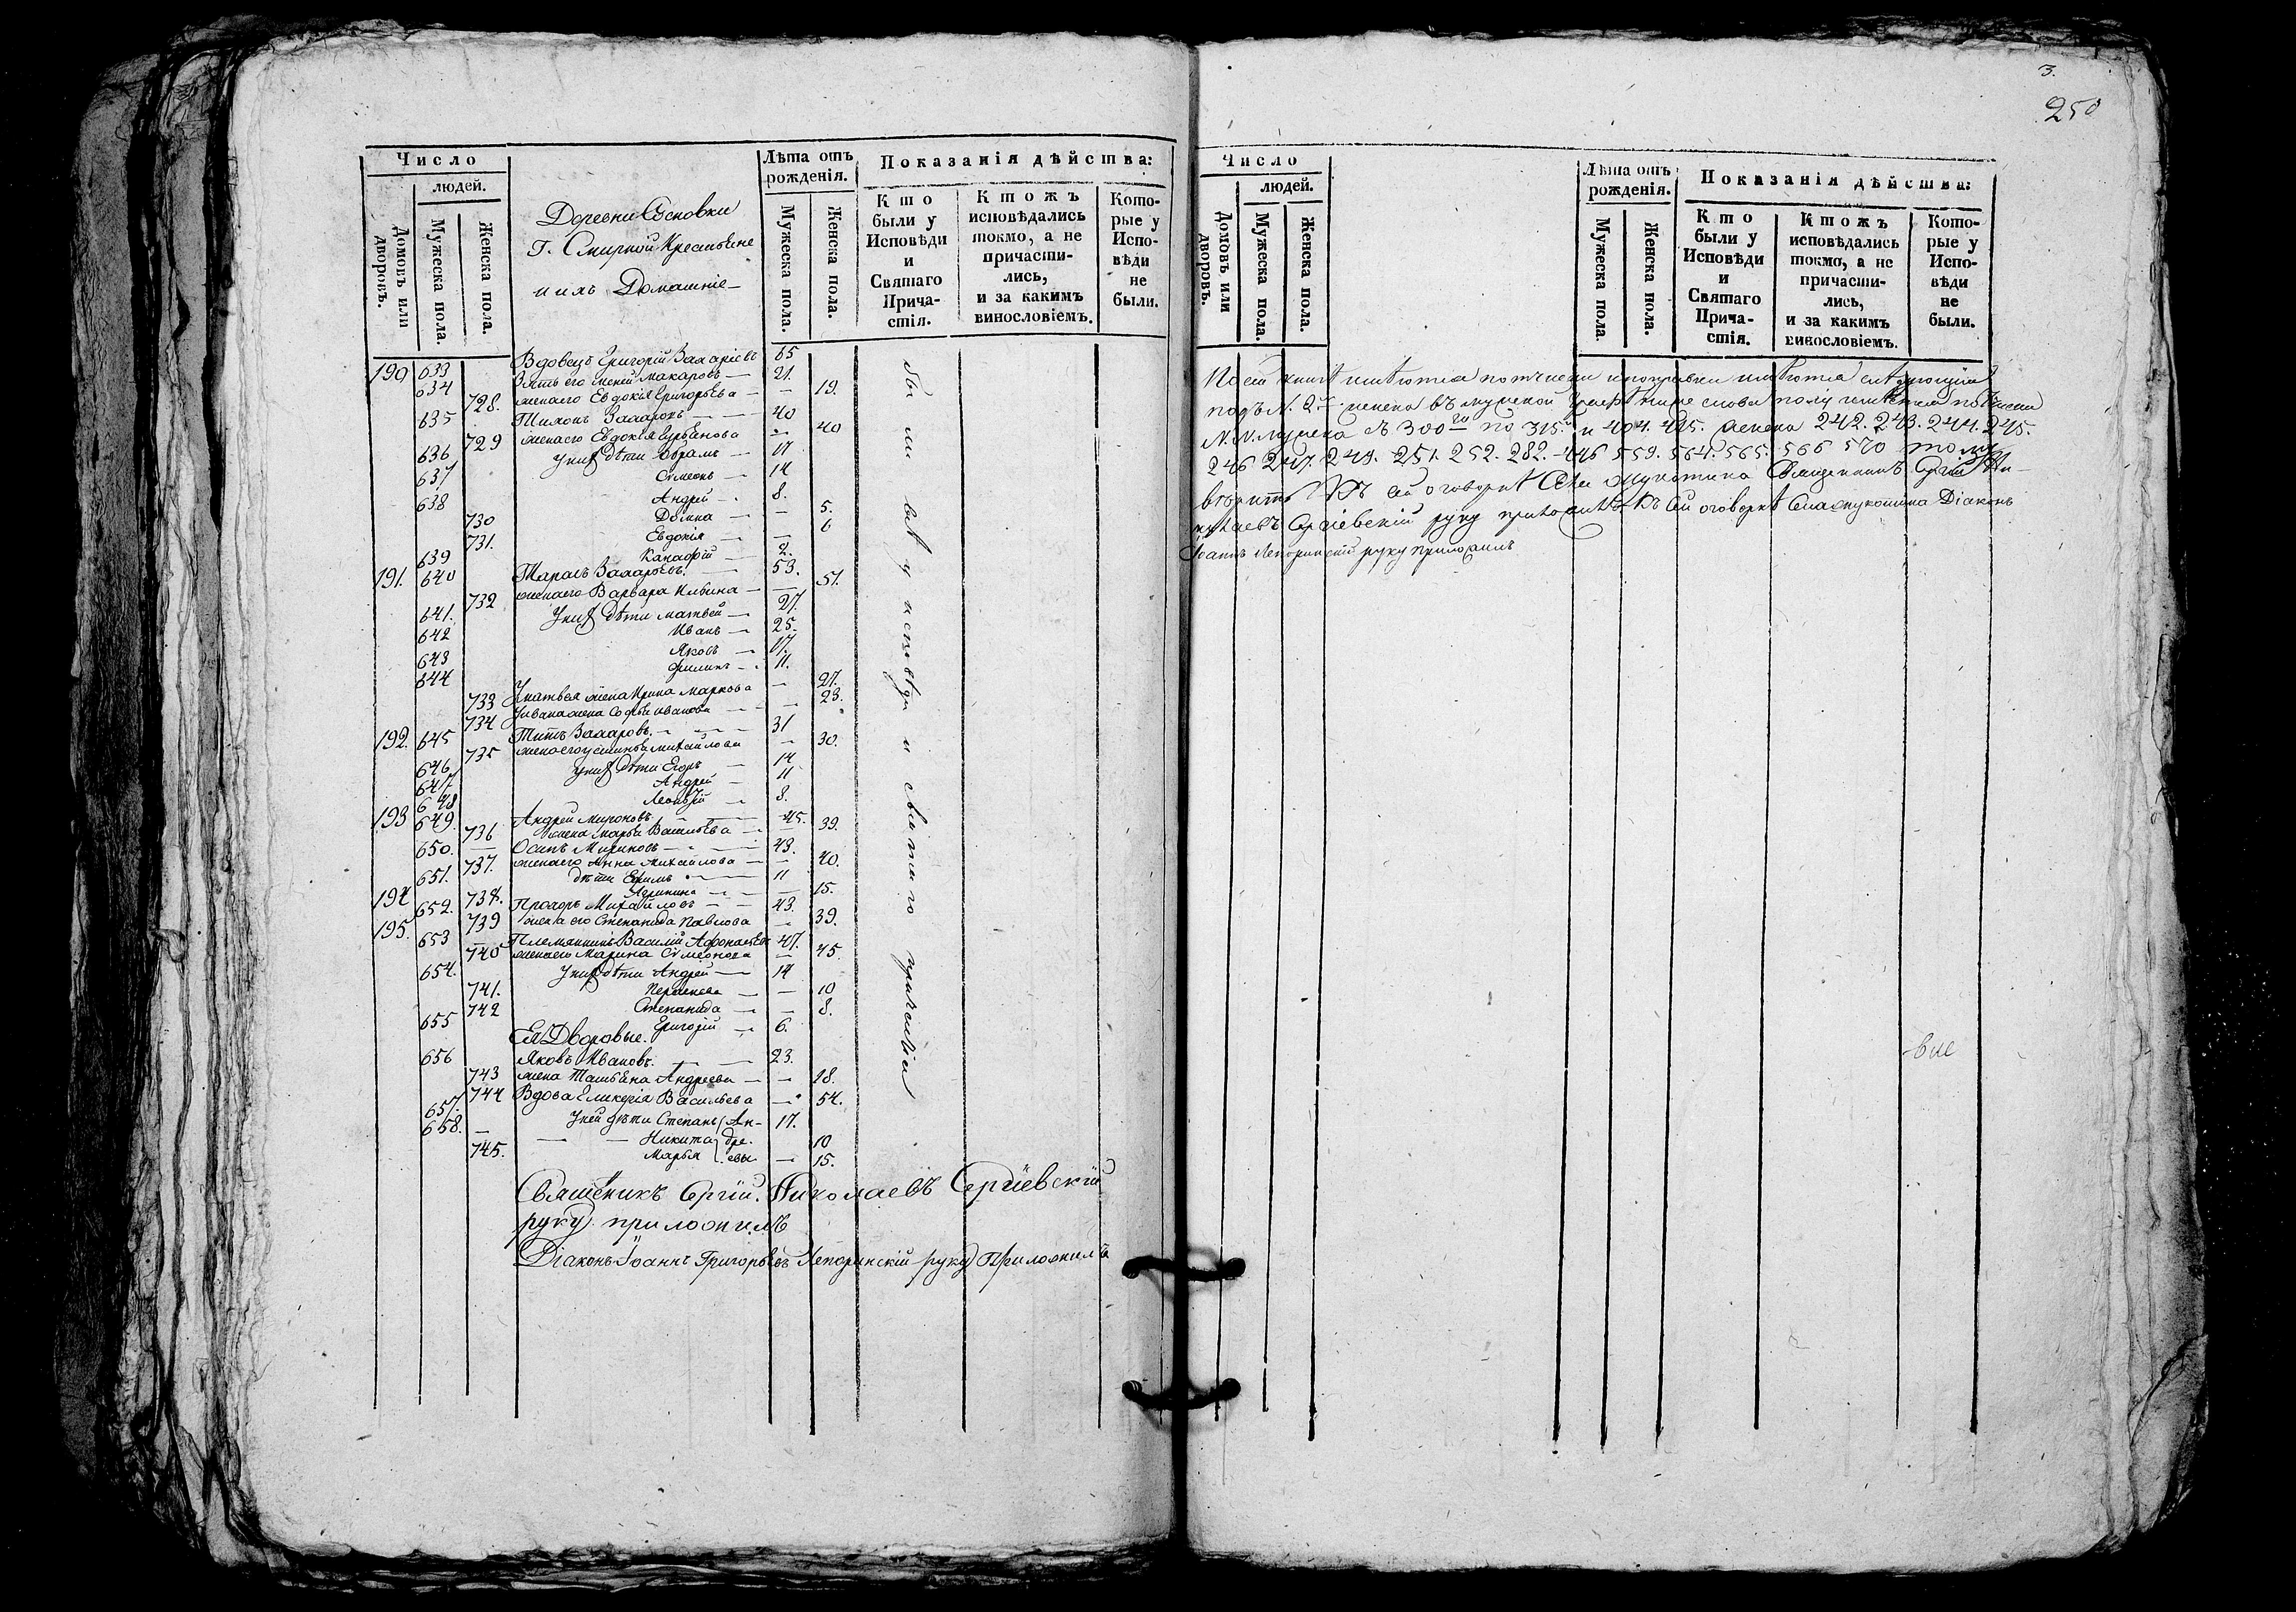 3.
250
Число
людей.
Домовъ или дворовъ.
Мужеска пола.
Женска пола.
Деревни Сосновки
Г. Смирной Крестьяне
и ихъ Домашніе
Лѣта отъ рожденія.
Мужеска пола.
Женска пола.
Показанія дѣйства:
Кто были у Исповѣди и Святаго Причастія.
Ктожъ исповѣдались токмо, а не причастились, и за какимъ винословіемъ.
Которые у Исповѣди не были.
190 633 Вдовецъ Григорій Захаріевъ 65
634 Зять его Макаровъ — 21.
728. жена его Евдокія Григорьева — — 19.
635 Тихонъ Захаровъ — — 40
729 жена его Евдокія — 40
636 у них дѣти Абрамъ — 11
637 Симеонъ — 14
638 Андрей — 8.
730 Домна — — 5.
731. Евдокія — — 6
639 2.
191. 640 Тарасъ Захарьевъ. — 53.
732 жена его Варвара Ильина — — 51.
641. у них дѣти Матвей — 27.
642 Иванъ — 25.
643 Яковъ — 17.
644 Филипъ — 11.
733 У Матвея жена Ирина Маркова — 27.
734 У Ивана жена Софья Иванова — — 23.
192. 645 Титъ Захаровъ. — — 31
735 жена его Устинья Михайлова — 30.
646 у них дѣти Егоръ — 14
647 Андрей — 11
648 Леонтій — 8.
193 649. Андрей Мироновъ — 45.
736 жена Марья Васильева — — 39.
650. Осипъ Мироновъ — — 43.
737. жена его Анна Михайлова — — 40.
651. дѣти Ефимъ — 11
738. — — 15.
194 652. Прохоръ Михайловъ — — 43.
739 жена его Степанида Павлова — 39.
195. 653 Племянникъ Василій Афонасьевъ 47.
740 жена его Марина Симеонова — 45.
654. у них дѣти Андрей — 14
741. — — 10
742 Степанида — — 8.
655 Григорій — 6.
Ея Дворовые.
656 Яковъ Ивановъ. — — 23.
743 жена Татьяна Андреева — — 18.
744 Вдова Гликерія Васильева — 54.
657. у ней дѣти Степанъ Ан- 17.
658. — — — Никита дре. 10
745. Марья евы — 15.
были всѣ у исповѣди и святаго причастія
Священикъ Сергій Николаевъ Сергіевскій
руку приложилъ
Діаконъ Іоаннъ Григорьевъ Лепоринскій руку Приложилъ
Число
людей.
Домовъ или дворовъ.
Мужеска пола.
Женска пола.
Лѣта отъ рожденія.
Мужеска пола
Женска пола.
Показанія дѣйства:
Кто были у Исповѣди и Святаго Причастія.
Ктожъ исповѣдались токмо, а не причастились, и за какимъ винословіемъ.
Которые у Исповѣди не были.
По сей книгѣ имѣются и поправки имѣются слѣдующія
подъ N. 2. въ мужеской графѣ слова полу
N. N. мужска съ 300 по 315. и 404. 415. женска 242. 243. 244. 245.
246 247. 249. 251. 252. 282. 446 559. 564. 565. 566 570 то му
въ сей оговоркѣ Священникъ Сергій Ни-
колаевъ Сергіевскій руку приложилъ Къ сей оговоркѣ Діаконъ
Іоаннъ Лепоринскій руку приложилъ